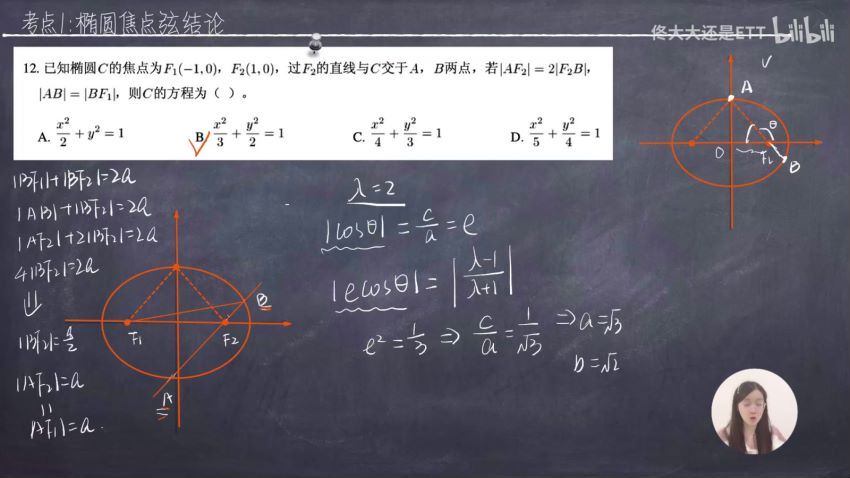 考点1:椭圆焦点弦结论
佟大大还是ETT bilibili
12. 已知椭圆C的焦点为F₁(−1,0)，F₂(1,0)，过F₂的直线与C交于A，B两点，若|AF₂| = 2|F₂B|,
|AB| = |BF₁|，则C的方程为（ ）。
A. x²/2 + y² = 1 B. x²/3 + y²/2 = 1 C. x²/4 + y²/3 = 1 D. x²/5 + y²/4 = 1
|BF₁|+|BF₂|=2a
|AB|+|BF₂|=2a
|AF₂|+2|BF₂|=2a
4|BF₂|=2a
⇓
|BF₂|=a/2
|AF₂|=a
=
|AF₁|=a.
F₁ F₂ B A
λ=2
|cosθ|=c/a=e
|ecosθ|=|λ-1/λ+1|
e²=1/3 ⇒ c/a=1/√3 ⇒a=√3
b=√2
A
θ
O F₂ B